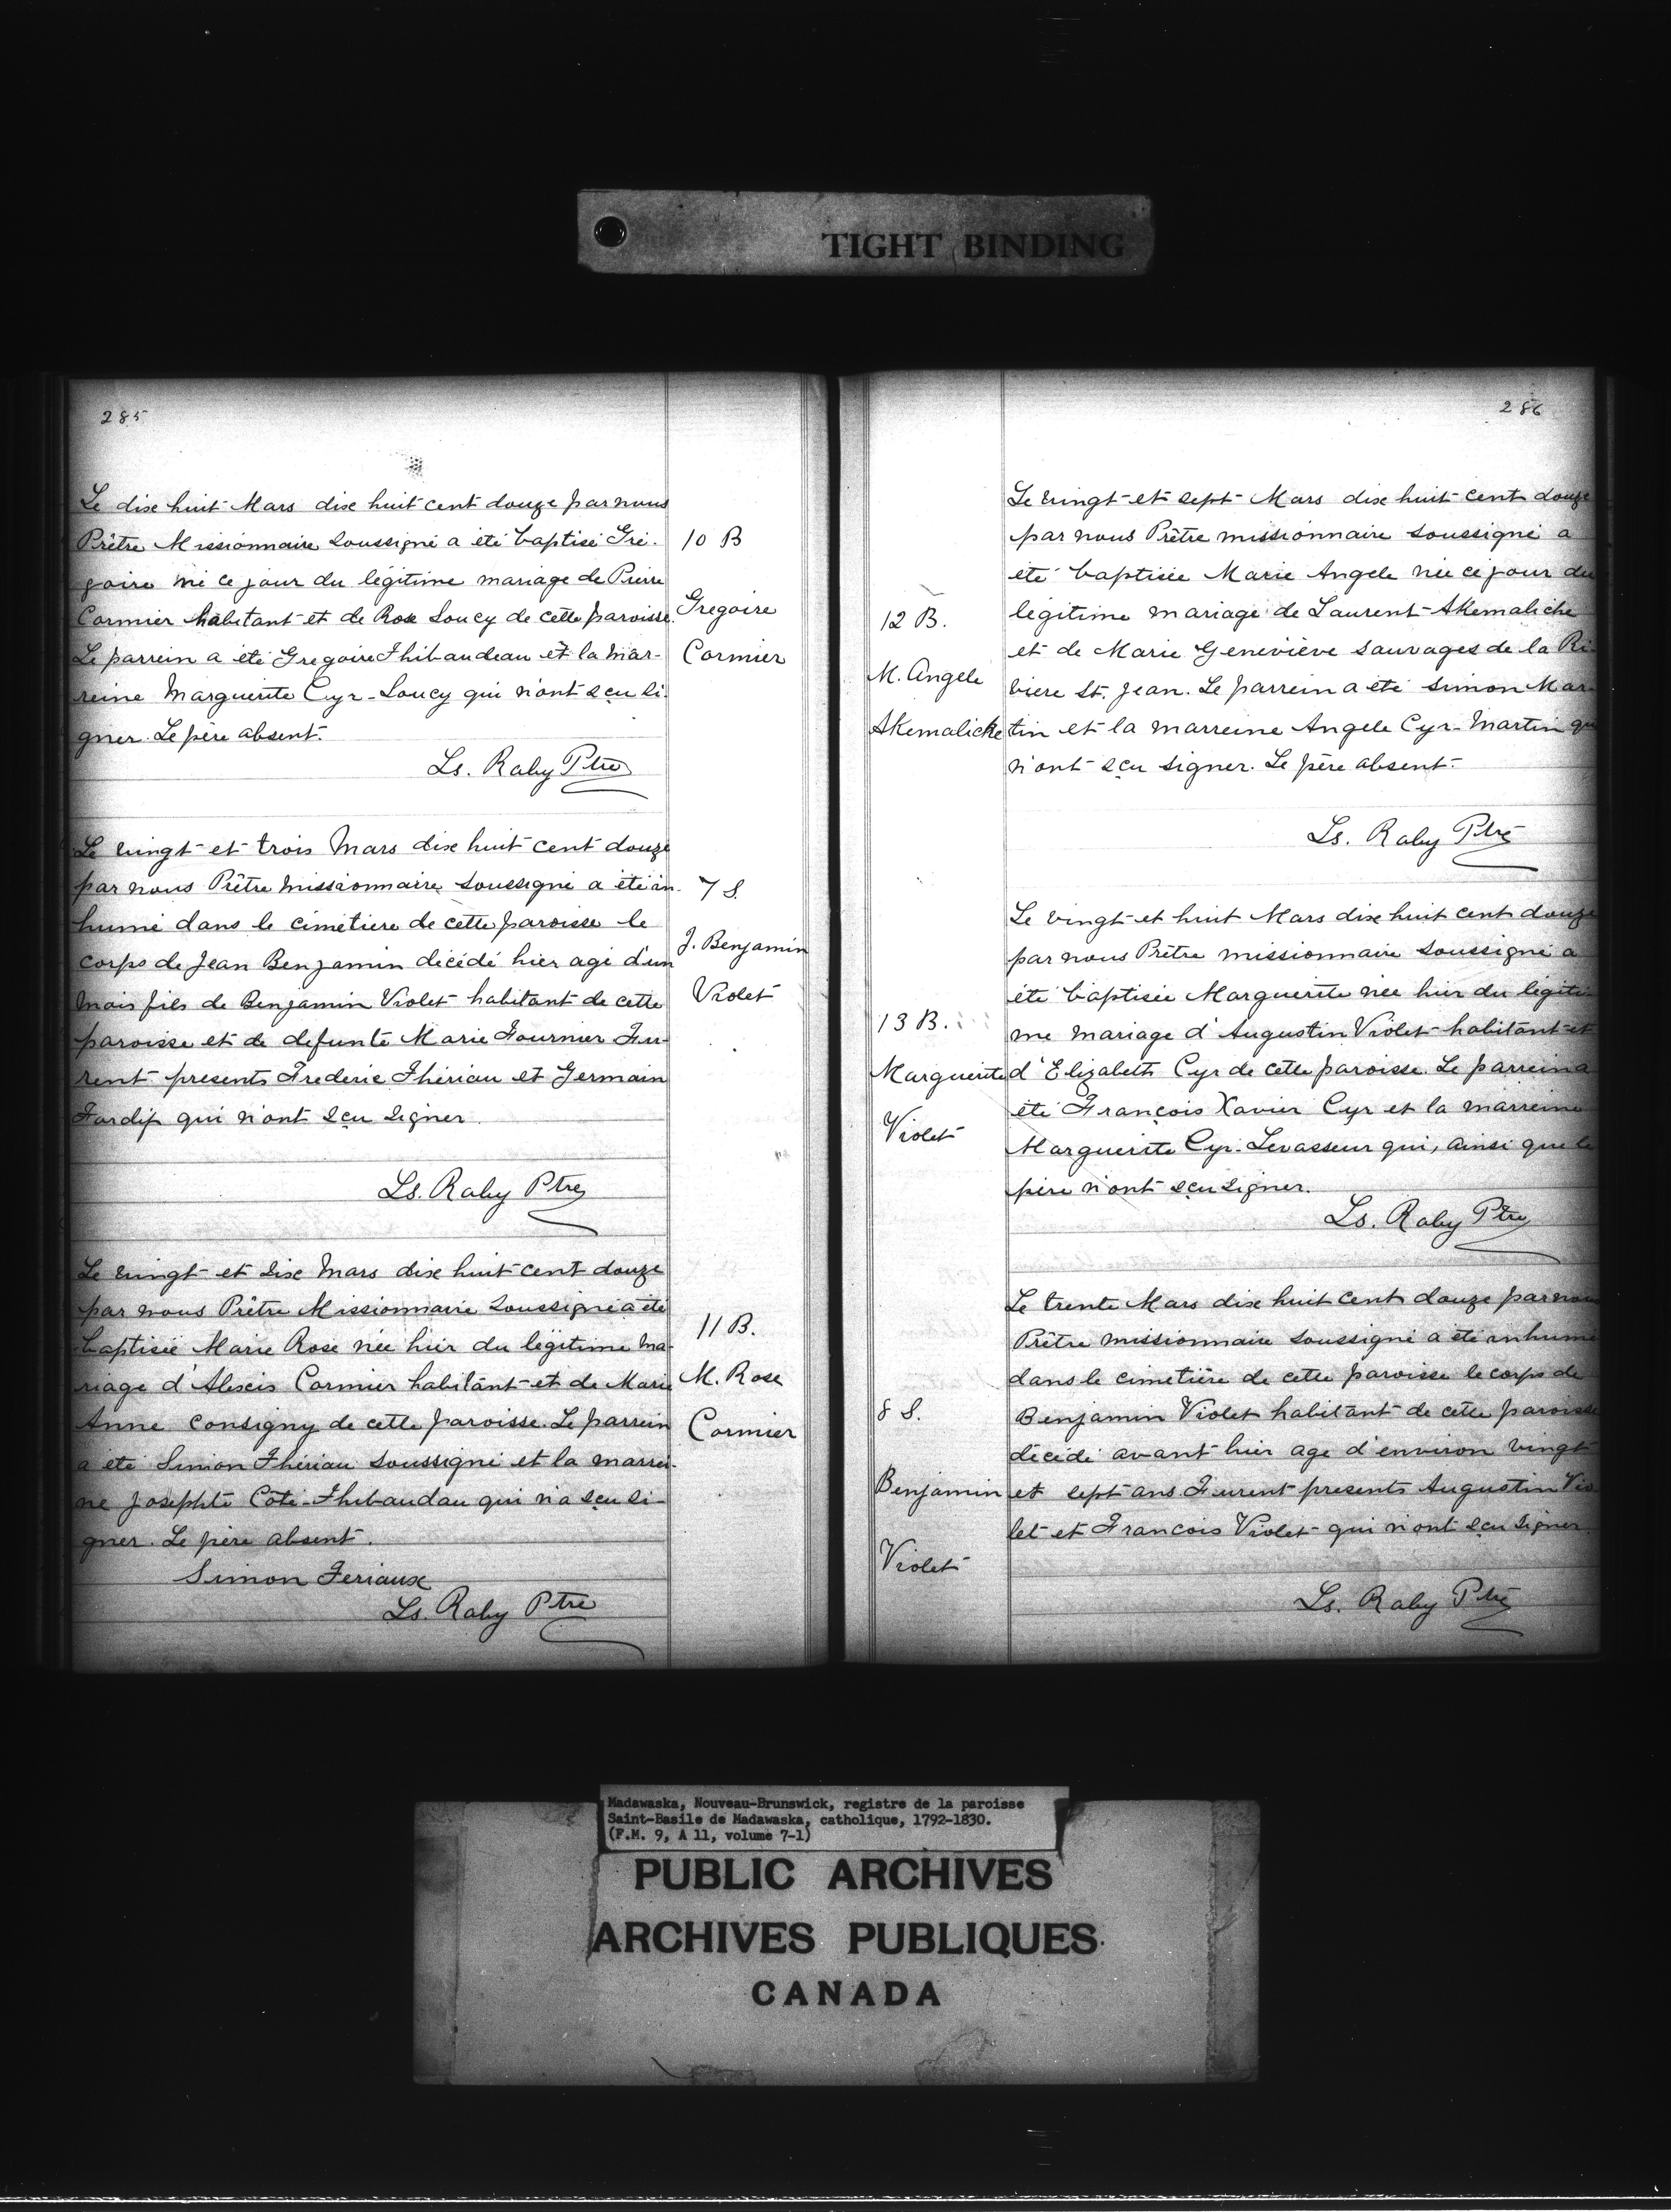 TIGHT BINDING
285
Le dix huit Mars dix huit cent douze par nous
Prêtre Missionnaire soussigné a été baptisé Gré-
goire né ce jour du légitime mariage de Pierre
Cormier habitant et de Rose Soucy de cette paroisse.
Le parrein a été Gregoire Thibaudeau et la mar-
reine Marguerite Cyr-Soucy qui n'ont sçu si-
gner. Le père absent.
Ls. Raby Ptre
10 B
Gregoire
Cormier
Le vingt et trois Mars dix huit cent douze
par nous Prêtre Missionnaire soussigné a été in-
humé dans le cimetiere de cette paroisse le
corps de Jean Benjamin décédé hier agé d'un
mois fils de Benjamin Violet habitant de cette
paroisse et de defunte Marie Fournier Fu-
rent presents Frederic Thériau et Germain
Tardif qui n'ont sçu signer.
Ls. Raby Ptre
7 S.
J. Benjamin
Violet
Le vingt et six Mars dix huit cent douze
par nous Prêtre Missionnaire soussigné a été
baptisée Marie Rose née hier du légitime ma-
riage d'Alexis Cormier habitant et de Marie
Anne Consigny de cette paroisse. Le parrein
a été Simon Thériau soussigné et la marrei-
ne Josephte Côté-Thibaudau qui n'a sçu si-
gner. Le père absent.
Simon Feriaux
Ls. Raby Ptre
11 B.
M. Rose
Cormier
286
Le vingt et sept Mars dix huit cent douze
par nous Prêtre missionnaire soussigné a
été baptisée Marie Angele née ce jour du
légitime mariage de Laurent Akemaliche
et de Marie Geneviève sauvages de la Ri-
viere St. Jean. Le parrein a été Simon Mar-
tin et la marreine Angele Cyr-Martin qui
n'ont sçu signer. Le père absent.
Ls. Raby Ptre
12 B.
M. Angele
Akemaliche
Le vingt et huit Mars dix huit cent douze
par nous Prêtre missionnaire soussigné a
été baptisée Marguerite née hier du légiti-
me mariage d'Augustin Violet habitant et
d'Elizabeth Cyr de cette paroisse. Le parrein a
été François Xavier Cyr et la marreine
Marguerite Cyr-Levasseur qui, ainsi que le
père n'ont sçu signer.
Ls. Raby Ptre
13 B.
Marguerite
Violet
Le trente Mars dix huit cent douze par nous
Prêtre missionnaire soussigné a été inhumé
dans le cimetière de cette paroisse le corps de
Benjamin Violet habitant de cette paroisse
décédé avant hier age d'environ vingt
et sept ans. Furent presents Augustin Vio
let et Francois Violet qui n'ont sçu signer.
Ls. Raby Ptre
8 S.
Benjamin
Violet
Madawaska, Nouveau-Brunswick, registre de la paroisse
Saint-Basile de Madawaska, catholique, 1792-1830.
(F.M. 9, A 11, volume 7-1)
PUBLIC ARCHIVES
ARCHIVES PUBLIQUES
CANADA